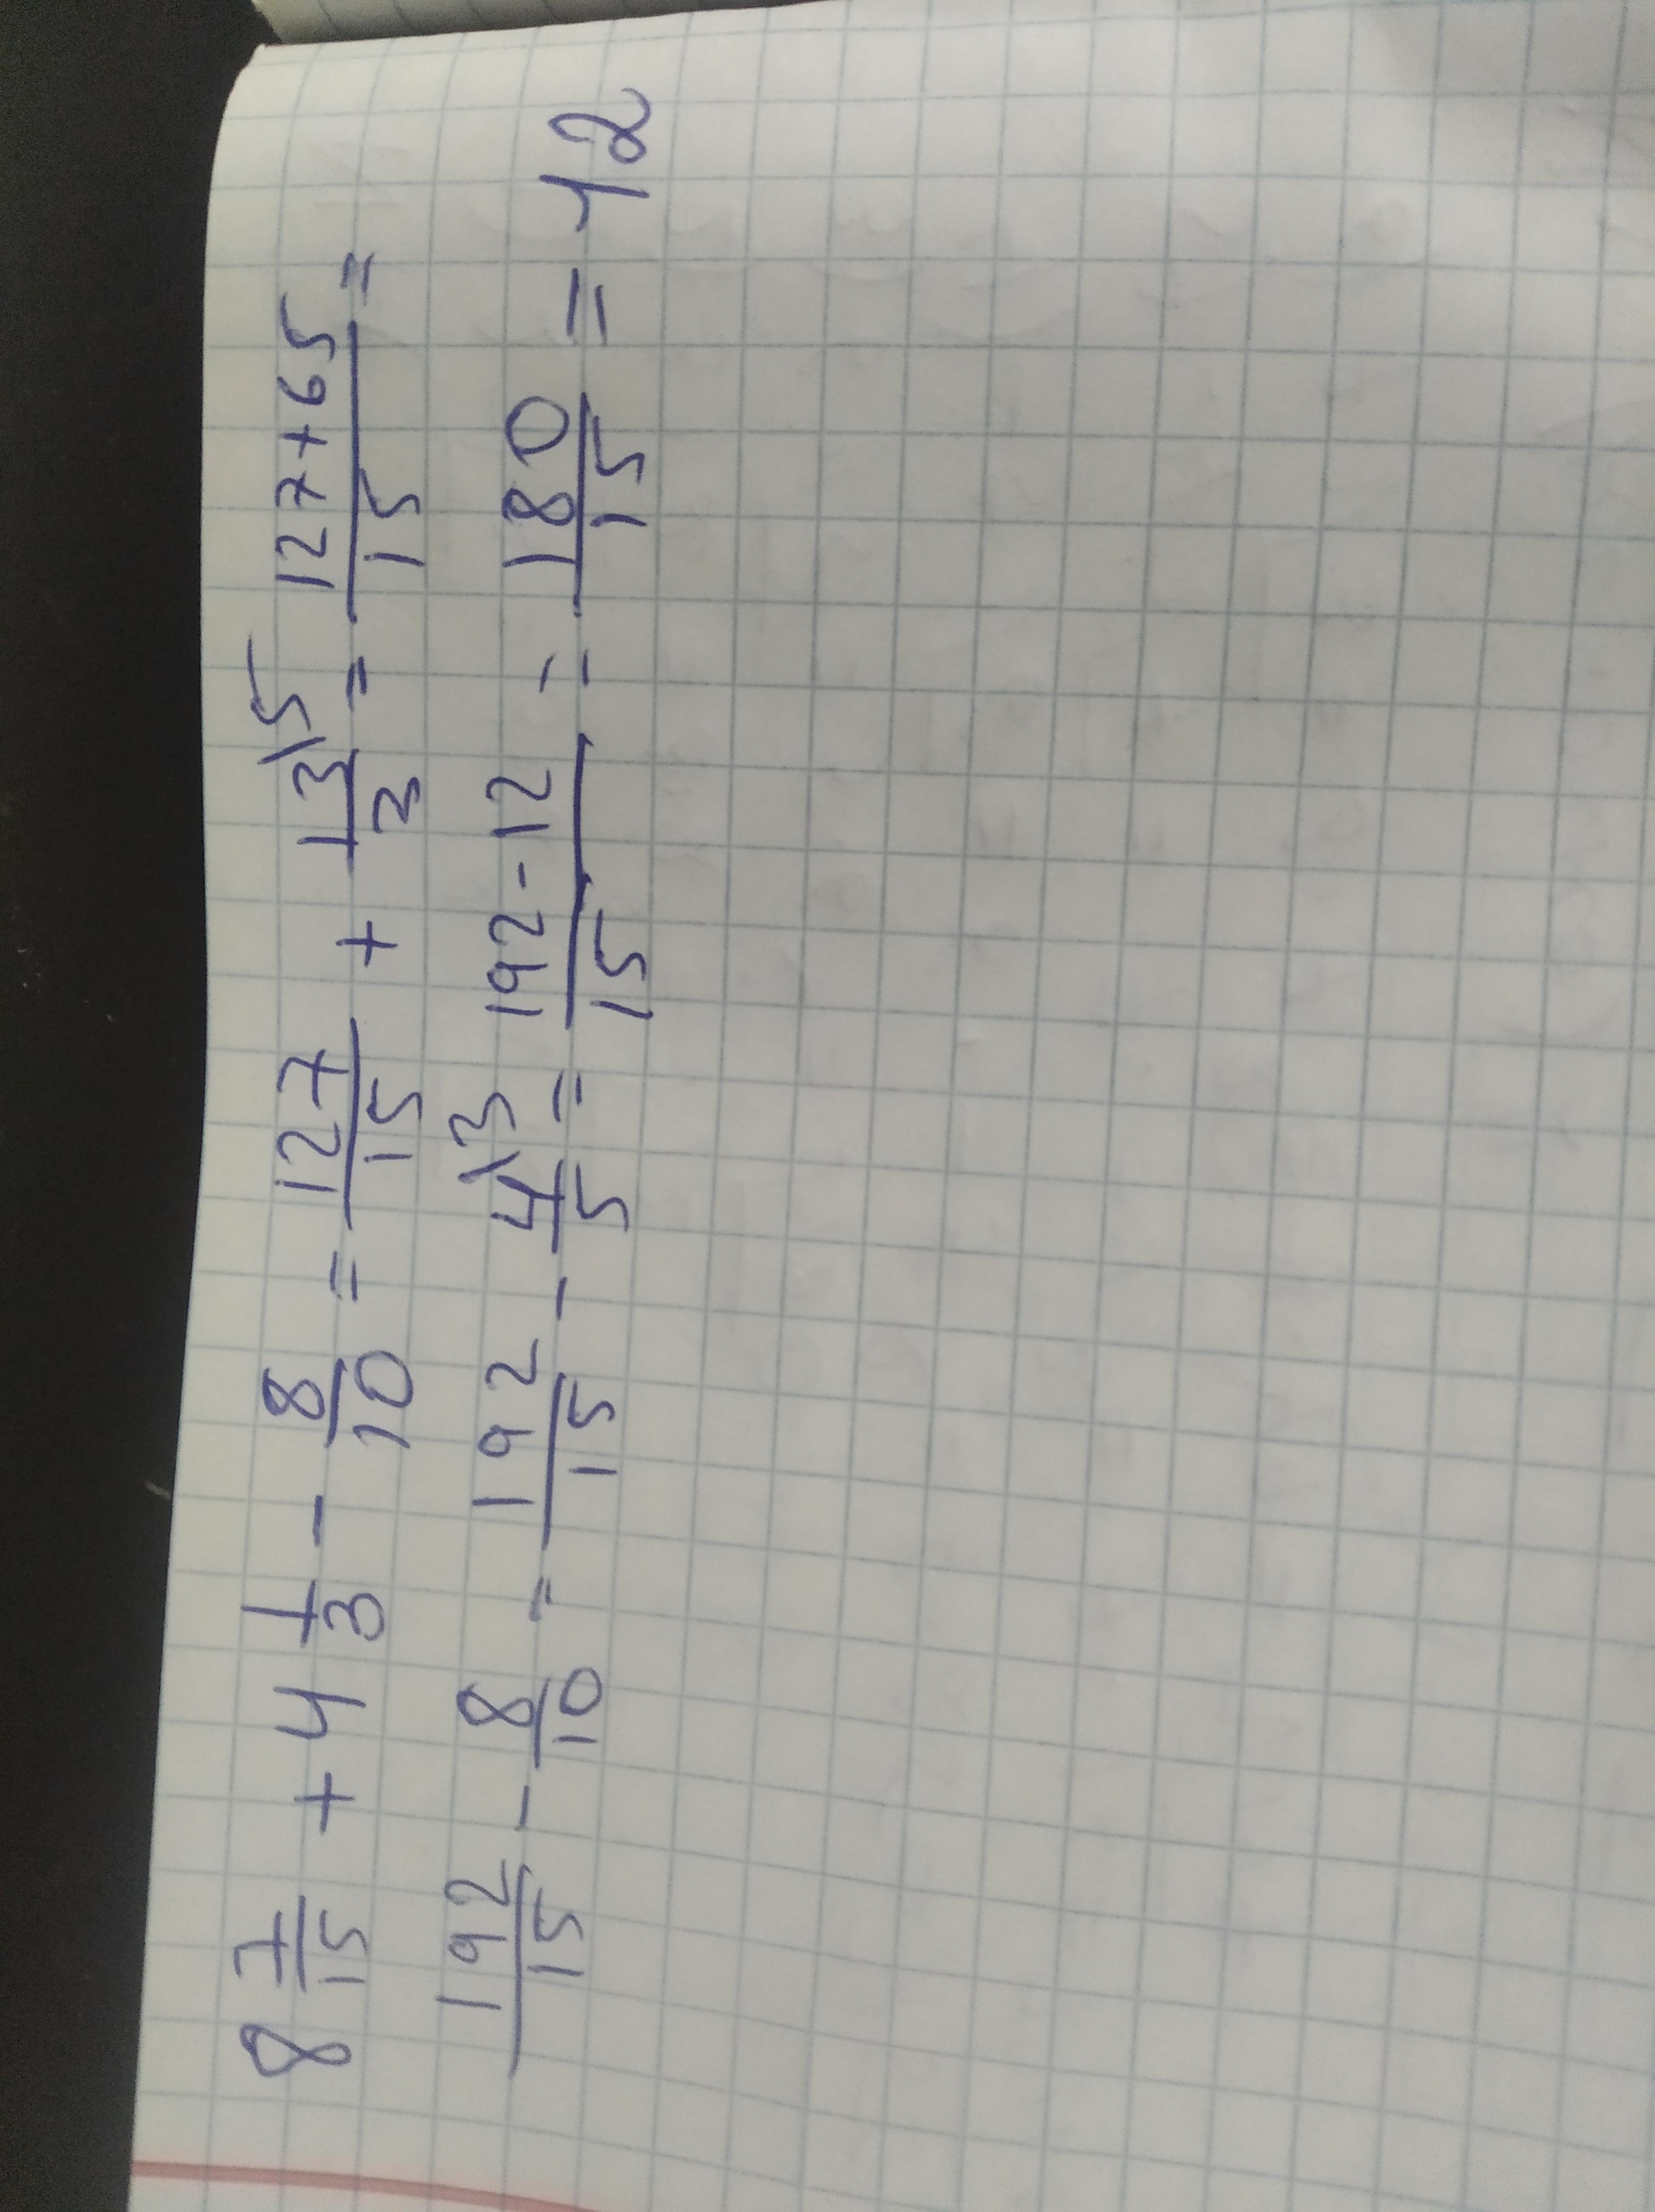 8 7/15 + 4 1/3 - 8/10 = 127/15 + 13\5/3 = 127+65/15 =
192/15 - 8/10 = 192/15 - 4\3/5 = 192-12/15 = 180/15 = 12